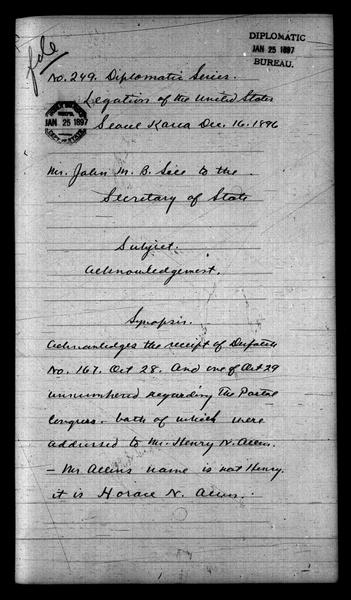 file
DIPLOMATIC
JAN 25 1897
BUREAU.
No. 249. Diplomatic Series.
Legation of the United States
JAN 25 1897
DEPT. OF STATE
Seoul Korea Dec. 16. 1896
Mr. John M. B. Sill to the
Secretary of State
Subject.
Acknowledgement.
Synopsis.
Acknowledges the receipt of Dispatch
No. 167. Oct 28. And one of Oct 29
unnumbered regarding The Postal
Congress. both of which were
addressed to Mr. Henry N. Allen.
– Mr Allens name is not Henry.
it is Horace N. Allen.